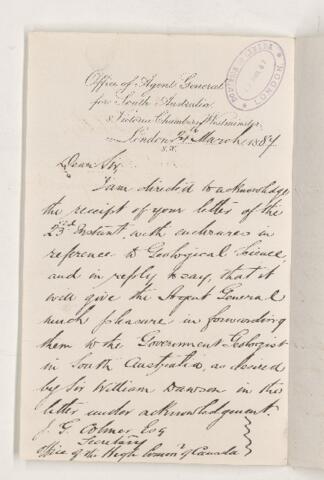 Office of Agent General
for South Australia.
8 Victoria Chambers, Westminster,
London 24th March 1887
S.W.
Dear Sir,
I am directed to acknowledge
the receipt of your letter of the
23rd Instant, with enclosures in
reference to Geological Science,
and in reply to say, that it
will give the Agent General
much pleasure in forwarding
them to the Government Geologist
in South Australia, as desired
by Sir William Dawson in the
letter under acknowledgment.
J. G. Colmer Esq
Secretary
Office of the High Commr of Canada
LONDON